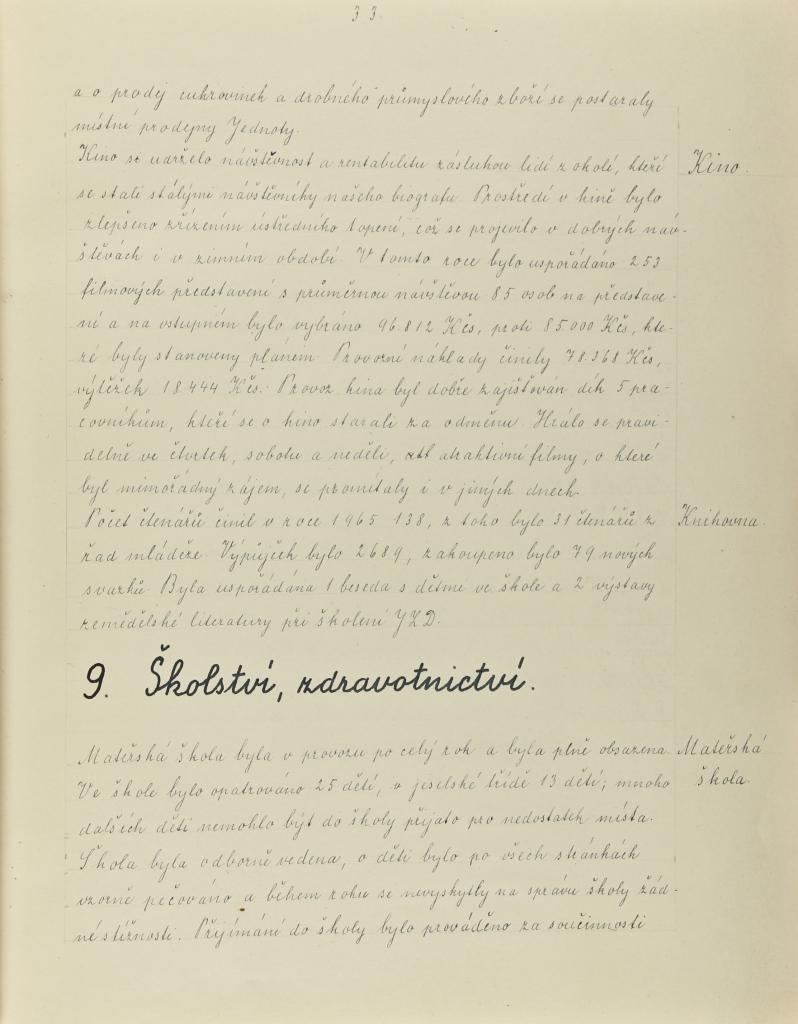 33
a o prodej cukrovinek a drobného průmyslového zboží se postaraly
místní prodejny Jednoty.
Kino si udrželo návštěvnost a rentabilitu zásluhou lidí z okolí, kteří
Kino.
se stali stálými návštěvníky našeho biografu. Prostředí v kině bylo
zlepšeno zřízením ústředního topení, což se projevilo v dobrých náv-
štěvách i v zimním období. V tomto roce bylo uspořádáno 253
filmových představení s průměrnou návštěvou 85 osob na představe-
ní a na vstupném bylo vybráno 96.812 Kčs, proti 85.000 Kčs, kte-
ré byly stanoveny plánem. Provozní náklady činily 78.368 Kčs,
výtěžek 18 444 Kčs. Provoz kina byl dobře zajišťován dík 5 pra-
covníkům, kteří se o kino starali za odměnu. Hrálo se pravi-
delně ve čtvrtek, sobotu a neděli, atraktivní filmy, o které
byl mimořádný zájem, se promítaly i v jiných dnech.
Počet čtenářů činil v roce 1965 138, z toho bylo 31 čtenářů z
Knihovna.
řad mládeže. Výpůjček bylo 2689, zakoupeno bylo 79 nových
svazků. Byla uspořádána 1 beseda s dětmi ve škole a 2 výstavy
zemědělské literatury při školení JZD.
9. Školství, zdravotnictví.
Mateřská škola byla v provozu po celý rok a byla plně obsazena.
Mateřská
Ve škole bylo opatrováno 25 dětí, v jeselské třídě 13 dětí; mnoho
škola.
dalších dětí nemohlo být do školy přijato pro nedostatek místa.
Škola byla odborně vedena, o děti bylo po všech stránkách
vzorně pečováno a během roku se nevyskytly na správu školy žád-
né stížnosti. Přijímání do školy bylo prováděno za součinnosti